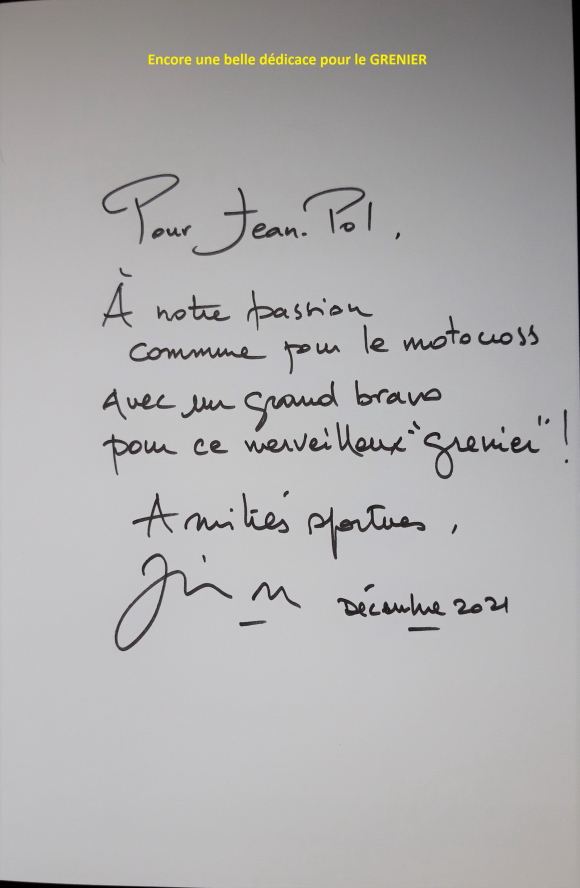 Encore une belle dédicace pour le GRENIER
Pour Jean-Pol,
À notre passion
commune pour le motocross
Avec un grand bravo
pour ce merveilleux "grenier" !
Amitiés sportives,
Décembre 2021